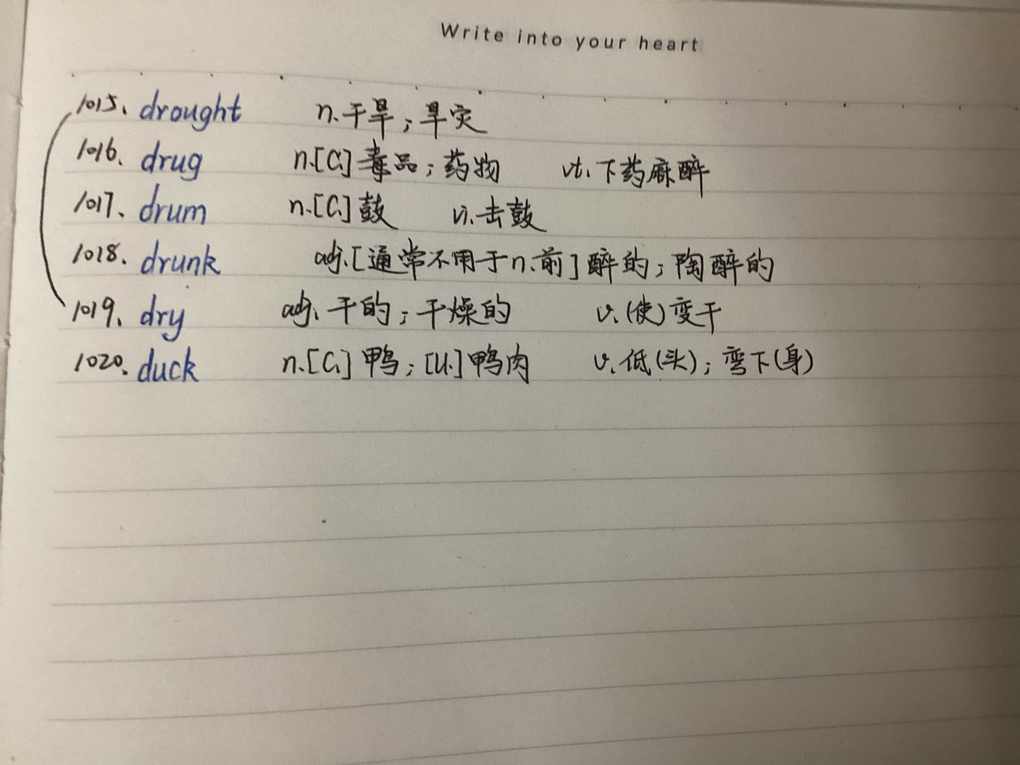 Write into your heart
1015. drought n.干旱；旱灾
1016. drug n.[C.]毒品；药物 vt.下药麻醉
1017. drum n.[C.]鼓 vi.击鼓
1018. drunk adj.[通常不用于n.前]醉的；陶醉的
1019. dry adj.干的；干燥的 v.(使)变干
1020. duck n.[C.]鸭；[U.]鸭肉 v.低(头)；弯下(身)